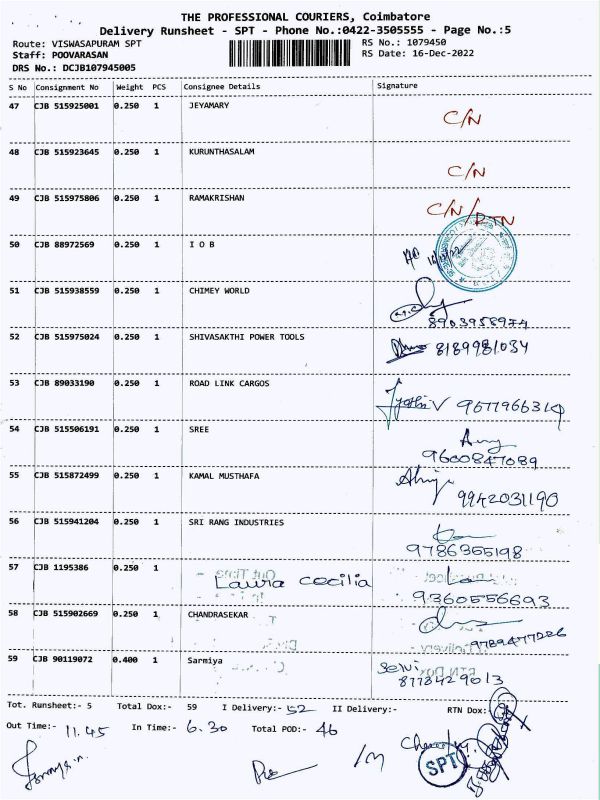 THE PROFESSIONAL COURIERS, Coimbatore
Delivery Runsheet - SPT - Phone No.:0422-3505555 - Page No.:5
Route: VISWASAPURAM SPT RS No.: 1079450
Staff: POOVARASAN RS Date: 16-Dec-2022
DRS No.: DCJB107945005
S No Consignment No Weight PCS Consignee Details Signature
47 CJB 515925001 0.250 1 JEYAMARY C/N
48 CJB 515923645 0.250 1 KURUNTHASALAM C/N
49 CJB 515975806 0.250 1 RAMAKRISHAN C/N/RTN
50 CJB 88972569 0.250 1 I O B
51 CJB 515938559 0.250 1 CHIMEY WORLD
8903958974
52 CJB 515975024 0.250 1 SHIVASAKTHI POWER TOOLS 8189981034
53 CJB 89033190 0.250 1 ROAD LINK CARGOS
Jyothi V 9677966314
54 CJB 515506191 0.250 1 SREE
9600847089
55 CJB 515872499 0.250 1 KAMAL MUSTHAFA
9942031190
56 CJB 515941204 0.250 1 SRI RANG INDUSTRIES
9786355198
57 CJB 1195386 0.250 1 Laura cecilia
9360556693
58 CJB 515902669 0.250 1 CHANDRASEKAR
9789477226
59 CJB 90119072 0.400 1 Sarmiya Selvi
8778429013
Tot. Runsheet:- 5 Total Dox:- 59 I Delivery:- 52 II Delivery:- RTN Dox:-
Out Time:- 11.45 In Time:- 6.30 Total POD:- 46
SPT